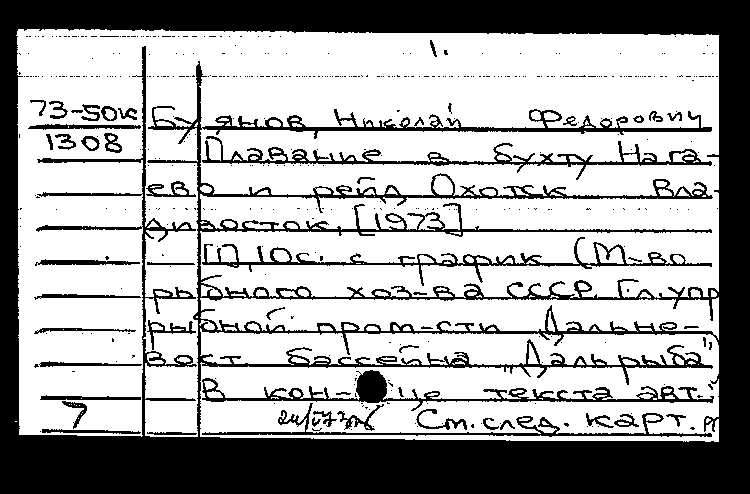 1.
73-50к Буянов, Николай Федорович
1308 Плавание в бухту Нага-
ево и рейд Охотск Вла-
дивосток, [1973].
[1], 10с. с график (М-во
рыбного хоз-ва СССР. Гл. упр
рыбной пром-сти Дальне-
вост бассейна „Дальрыба"
В кон-це текста авт.:
7 Ст. след. карт.